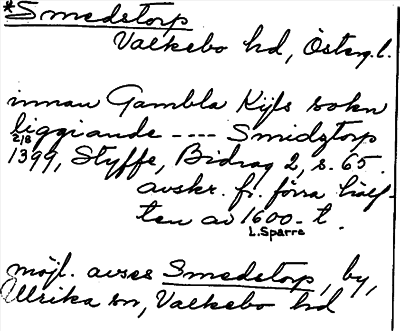 *Smedstorp
Valkebo hd, Österg.l.
innan Gambla Kijls sokn
liggiande ---- Smidztorp
2/8
1399, Styffe, Bidrag 2, s. 65.
avskr. fr. förra hälf-
ten av 1600-t.
L.Sparre
möjl. avses Smedstorp, by,
Ulrika sn, Valkebo hd